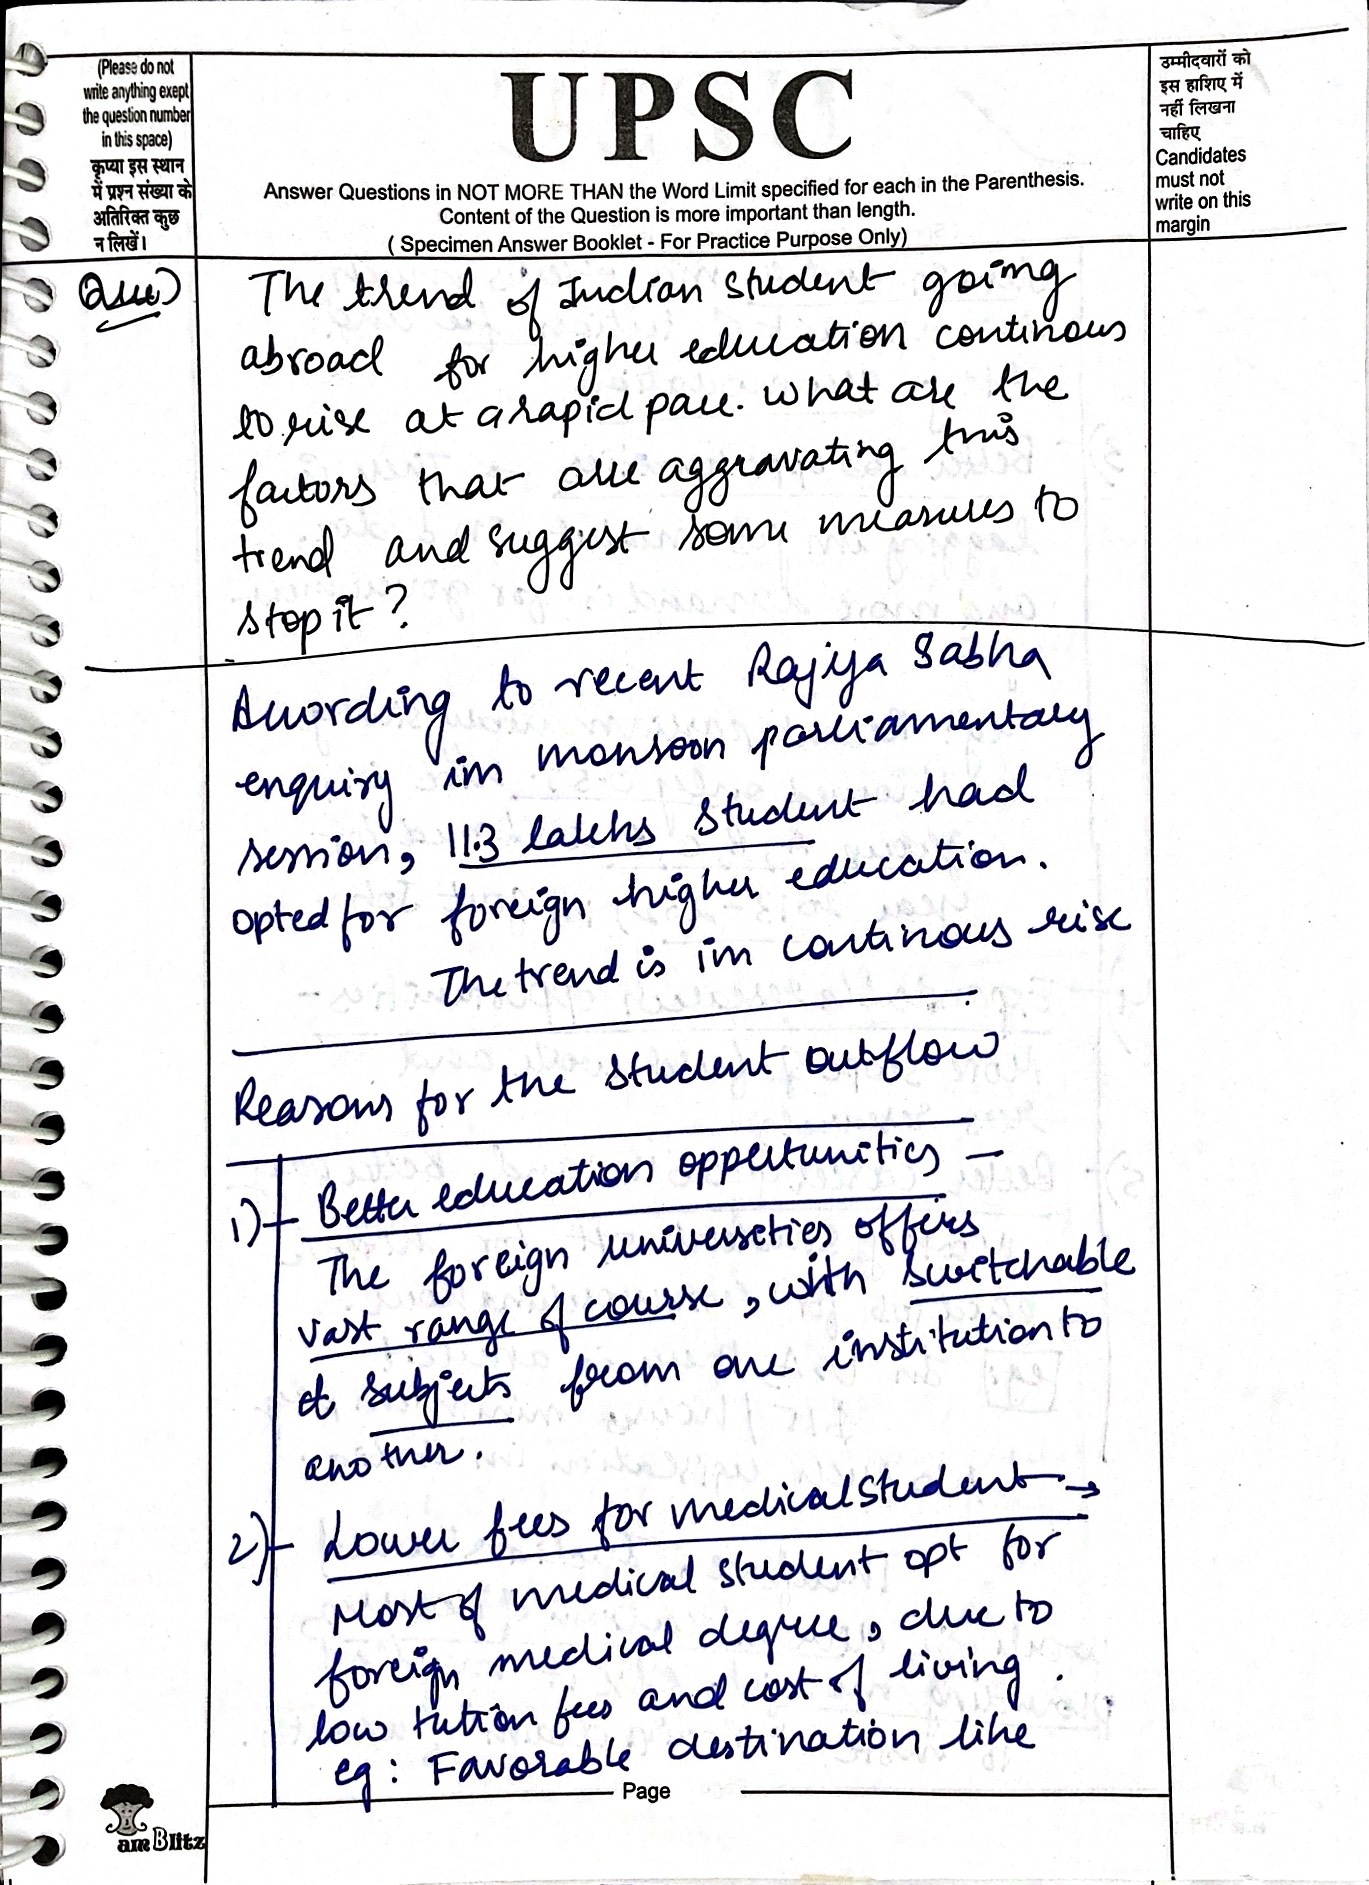 (Please do not
write anything exept
the question number
in this space)
कृप्या इस स्थान
में प्रश्न संख्या के
अतिरिक्त कुछ
न लिखें।
UPSC
Answer Questions in NOT MORE THAN the Word Limit specified for each in the Parenthesis.
Content of the Question is more important than length.
( Specimen Answer Booklet - For Practice Purpose Only)
उम्मीदवारों को
इस हाशिए में
नहीं लिखना
चाहिए
Candidates
must not
write on this
margin
Ques)
The trend of Indian student going
abroad for higher education continous
to rise at a rapid pace. What are the
factors that are aggravating this
trend and suggest some measures to
stop it?
According to recent Rajya Sabha
enquiry in monsoon parliamentary
session, 11.3 lakhs student had
opted for foreign higher education.
The trend is in continous rise
Reasons for the student outflow
1) Better education oppertunities -
The foreign universeties offers
vast range of course, with switchable
of subjects from one institution to
another.
2) Lower fees for medical student →
Most of medical student opt for
foreign medical degree, due to
low tution fees and cost of living.
eg: Favorable destination like
Page
am Blitz